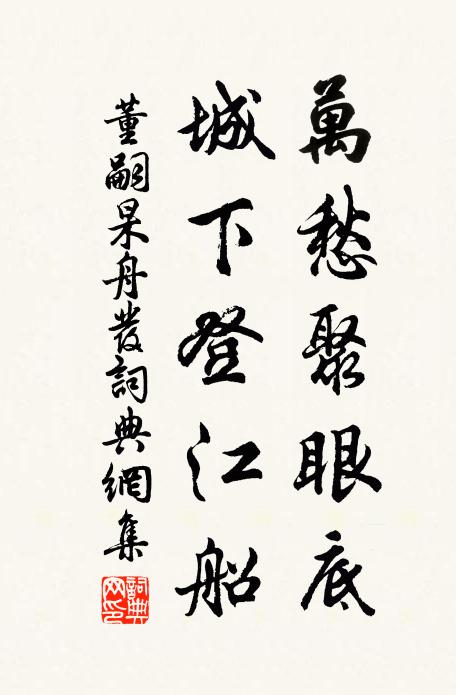 萬愁聚眼底
城下登江船
董嗣杲舟發詞典網集
詞典網印